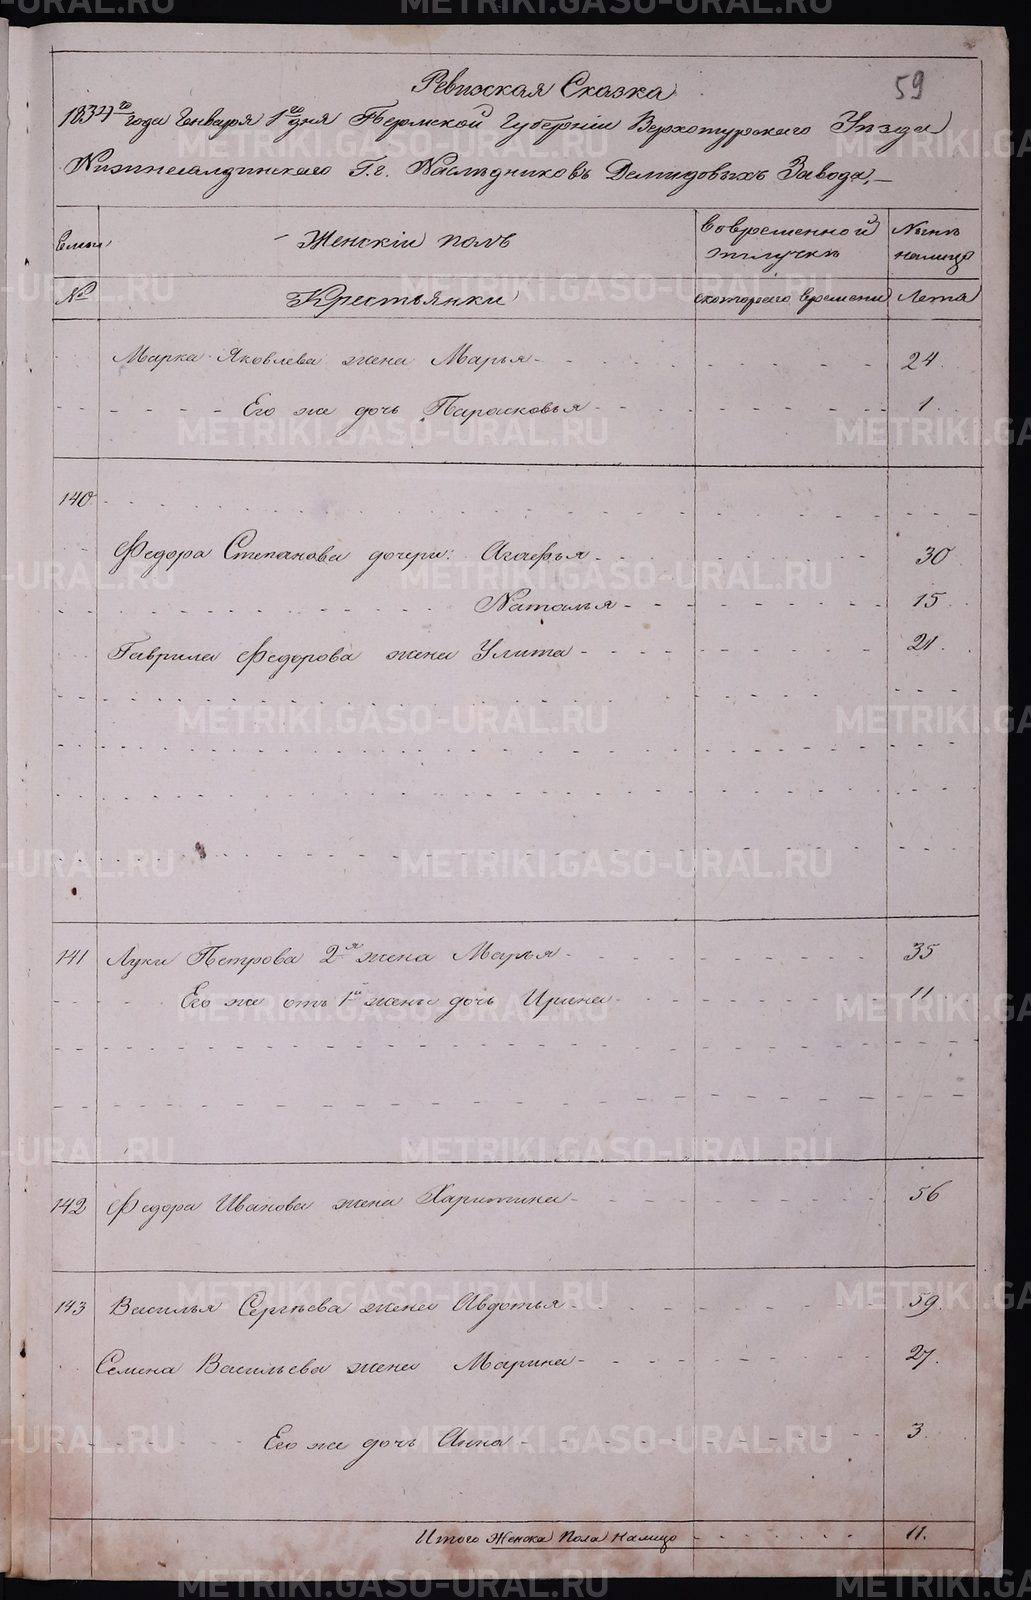 59
Ревизская Сказка
1834го года Генваря 1го дня Пермской Губернiи Верхотурскаго Уѣзда
Нижнесалдинскаго Г.г. Наслѣдниковъ Демидовыхъ Завода,—
Семьи Женскiй полъ Вовременной отлучкѣ Нынѣ налицо
№ Крестьянки скотораго времени Лета
Марка Яковлева жена Марья 24.
Его же дочь Парасковья 1.
140
Федора Степанова дочери: Агафья 30
Наталья 15
Гаврила Федорова жена Улита 21.
141 Луки Петрова 2я жена Марья 35
Его же отъ 1й жены дочь Ирина 11
142 Федора Иванова жена Харитина 56
143 Василья Сергѣева жена Авдотья 59.
Семена Васильева жена Марина 27.
Его же дочь Анна 3.
Итого Женска Пола налицо 11.
METRIKI.GASO-URAL.RU